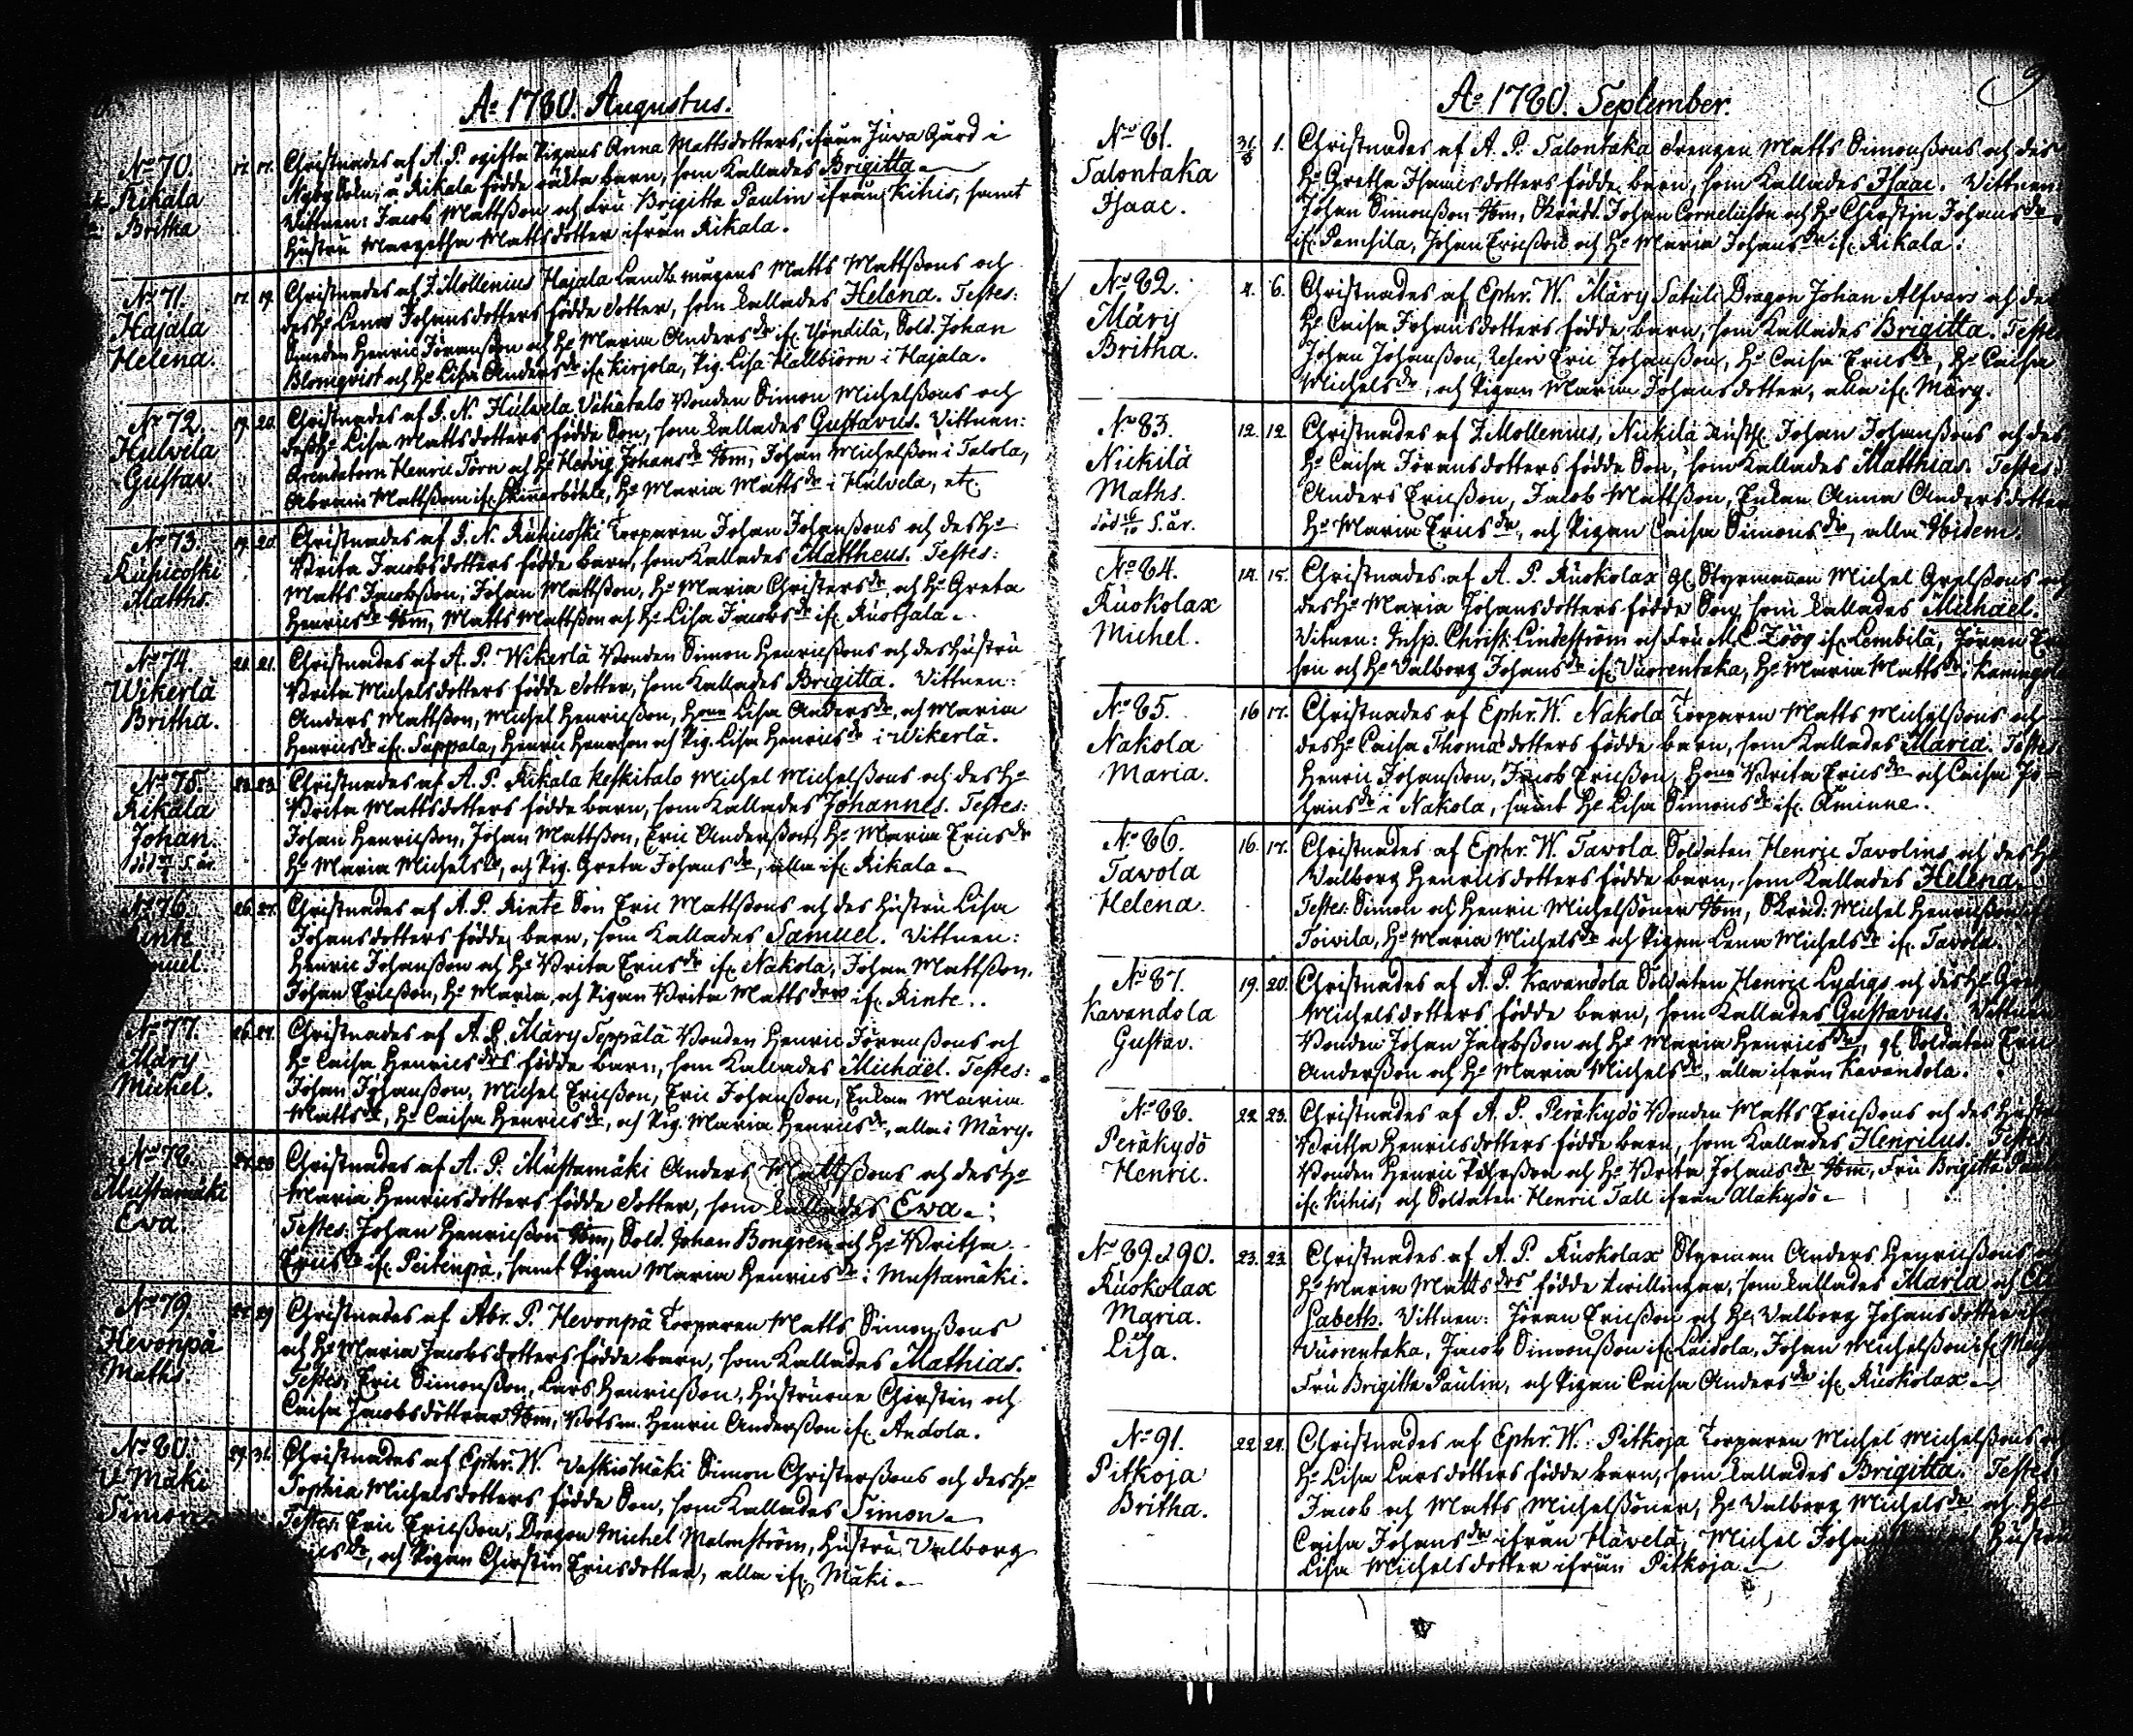 Ao 1780. Augustus.
No 70.
Rikala
Britha
17. 17. Christnades af A. P. ogifta Pigans Anna Mattsdotters, ifrån Juva Gård i
Nyby Sokn, i Rikala födde oäkta barn, som kallades Brigitta.
Vittnen: Jacob Mattsson och Fru Brigitta Paulin ifrån Kihis, samt
Hustru Margetha Mattsdotter ifrån Rikala.
No 71.
Hajala
Helena.
17. 19. Christnades af J. Mollenius Hajala Landb. mågens Matts Mattssons och
des Ho Lena Johansdotters födde dotter, som kallades Helena. Testes:
Smeden Henric Göransson och Ho Maria Andersdr ifr. Yöndilä, Sold. Johan
Blomqvist och Ho Lisa Andersdr ifr. Kirjola, Pig. Lisa Hallbiörn i Hajala.
No 72.
Hulvila
Gustav.
19. 20. Christnades af J. N. Hulvela Vähätalo Bonden Simon Michelssons och
dess Ho Lisa Mattsdotters födde Son, som kallades Gustavus. Vittnen:
Arendatorn Henric Törn och Ho Hedvig Johansdr Ibm, Johan Michelsson i Talola,
Abram Mattsson ifr. Skinnarböhle, Ho Maria Mattsdr i Hulvela, etc
No 73.
Kukicoski
Matths.
19. 20. Christnades af J. N. Kukicoski Torparen Johan Johanssons och des Ho
Brita Jacobsdotters födde barn, som kallades Mattheus. Testes:
Matts Jacobsson, Johan Mattsson, Ho Maria Christersdr, och Ho Greta
Henricsdr Ibm, Matts Mattsson och Ho Lisa Jacobsdr ifr. Ruotsala.
No 74.
Wikerlä
Britha.
20. 21. Christnades af A. P. Wikerlä Bonden Simon Henricssons och des Hustru
Brita Michelsdotters födde dotter, som kallades Brigitta. Vittnen:
Anders Mattsson, Michel Henricsson, Hona Lisa Andersdr, och Maria
Henricsdr ifr. Suppala, Henric Henricson och Pig. Lisa Henricsdr i Wikerlä.
No 75.
Rikala
Johan.
död 5. år
22. 23. Christnades af A. P. Rikala Keskitalo Michel Michelssons och des Ho
Brita Mattsdotters födde barn, som kallades Johannes. Testes:
Johan Henricsson, Johan Mattsson, Eric Andersson, Ho Maria Ericsdr
Ho Maria Michelsdr, och Pig. Greta Johansdr, alla ifr. Rikala.
No 76.
26. 27. Christnades af A. P. Rinte Son Eric Mattssons och des Hustru Lisa
Johansdotters födde barn, som kallades Samuel. Vittnen:
Henric Johansson och Ho Brita Ericsdr ifr. Nakola, Johan Mattsson,
Johan Ericsson, Ho Maria och Pigan Brita Mattsdrar ifr. Rinte.
No 77.
Märy
Michel.
26. 27. Christnades af A. P. Märy Seppälä Bonden Henric Göranssons och
Ho Caisa Henricsdrs födde barn, som kallades Michaël. Testes:
Johan Johansson, Michel Ericsson, Eric Johansson, Enkan Maria
Mattsdr, Ho Caisa Henricsdr, och Pig. Maria Henricsdr, alla i Märy.
No 78.
Mustamäki
Eva.
27. 28 Christnades af A. P. Mustamäki Anders Mattssons och des Ho
Maria Henricsdotters födde dotter, som kallades Eva.
Testes: Johan Henricsson Ibm, Sold. Johan Bongren och Ho Britha
Ericsdr ifr. Peitenpä, samt Pigan Maria Henricsdr i Mustamäki.
No 79.
Hevonpä
Maths.
27. 29 Christnades af Abr. P. Hevonpä Torparen Matts Simonssons
och Ho Maria Jacobsdotters födde barn, som kallades Mathias.
Testes: Eric Simonsson, Lars Henricsson, Hustruone Cherstin och
Caisa Jacobsdöttrar Ibm, Botsm. Henric Andersson ifr. Andola.
No 80.
V. Mäki
Simon.
29. 31. Christnades af Ephr. W. Vaskiomäki Simon Christerssons och des Ho
Sophia Michelsdotters födde Son, som kallades Simon.
Testes: Eric Ericsson, Dragon Michel Malmström, Hustru Valborg
dr, och Pigan Cherstin Ericsdotter, alla ifr. Mäki.
Ao 1780. September.
No 81.
Talontaka
Isaac.
31/8 1. Christnades af A. P. Talontaka drengen Matts Simonssons och des
Ho Gretha Isaacsdotters födde barn, som kallades Isaac. Vittnen:
Johan Simonsson Ibm, Skrädd. Johan Corneliusson och Ho Cherstin Johansdr
ifr. Pamphila, Johan Ericsson och Ho Maria Johansdr ifr. Rikala.
No 82.
Märy
Britha.
4. 6. Christnades af Ephr. W. Märy Satuli Dragon Johan Alfvars och des
Ho Caisa Johansdotters födde barn, som kallades Brigitta. Testes
Johan Johansson, Reserv Eric Johansson, Ho Caisa Ericsdr, Ho Caisa
Michelsdr, och Pigan Maria Johansdotter, alla ifr. Märy.
No 83.
Nickilä
Maths.
död 16/10 5. år.
12. 12 Christnades af J. Mollenius, Nickilä Rusth. Johan Johanssons och des
Ho Caisa Göransdotters födde Son, som kallades Matthias. Testes:
Anders Ericsson, Jacob Mattsson, Enkan Anna Andersdotter
Ho Maria Ericsdr, och Pigan Caisa Simonsdr, alla Ibidem.
No 84.
Ruokolax
Michel.
14. 15. Christnades af A. P. Ruokolax gl. Styrmannen Michel Grelssons och
des Ho Maria Johansdotters födde Son, som kallades Michaël.
Vitnen: Insp. Christ. Lindeström och Fru M.C. Zöög ifr. Lembilä, Jöran Eric
son och Ho Valborg Johansdr ifr. Vuorentaka, Ho Maria Mattsdr i
No 85.
Nakola
Maria.
16 17. Christnades af Ephr. W. Nakola Torparen Matts Michelssons och
des Ho Caisa Thomasdotters födde barn, som kallades Maria. Testes
Henric Johansson, Jacob Ericsson, Hona Brita Ericsdr och Caisa Jo-
hansdr i Nakola, samt Ho Lisa Simonsdr ifr. Åminne.
No 86.
Tavola
Helena.
16. 17. Christnades af Ephr. W. Tavola Soldaten Henric Tavolins och des Ho
Valborg Henricsdotters födde barn, som kallades Helena.
Testes: Simon och Henric Michelssöner Ibm, Skräd: Michel Henricsson
Toivila, Ho Maria Michelsdr och Pigan Lena Michelsdr ifr. Tavola.
No 87.
Kavandola
Gustav.
19. 20. Christnades af A. P. Kavandola Soldaten Henric Lydigs och des Ho
Michelsdotters födde barn, som kallades Gustavus. Vittnen
Bonden Johan Jacobsson och Ho Maria Henricsdr, gl. Soldaten Eric
Andersson och Ho Maria Michelsdr, alla ifrån Kavandola.
No 88.
Peräkydö
Henric.
22. 23. Christnades af A. P. Peräkydö Bonden Matts Ericssons och des Hustru
Britha Henricsdotters födde barn, som kallades Henricus. Testes
Bonden Henric Johansson och Ho Brita Johansdr Ibm, Fru Brigitta Paul
ifr. Kihis, och Soldaten Henric Tall ifrån Alakydö.
No 89 & 90.
Ruokolax
Maria.
Lisa.
23. 23. Christnades af A. P. Ruokolax Styrman Anders Henricssons
Ho Maria Mattsdrs födde twillingar, som kallades Maria och Eli
sabeth. Vittnen: Jöran Ericsson och Ho Valborg Johansdotter
Vuorentaka, Jacob Simonsson ifr. Laidola, Johan Michelsson ifr.
Fru Brigitta Paulin, och Pigan Caisa Andersdr ifr. Ruokolax.
No 91.
Pitkoja
Britha.
22. 24. Christnades af Ephr. W. Pitkoja Torparen Michel Michelssons
Ho Lisa Larsdotters födde barn, som kallades Brigitta. Testes
Jacob och Matts Michelssöner, Ho Valborg Michelsdr och Ho
Caisa Johansdr ifrån Hävelä, Michel Hustru
Lisa Michelsdotter ifrån Pitkoja.